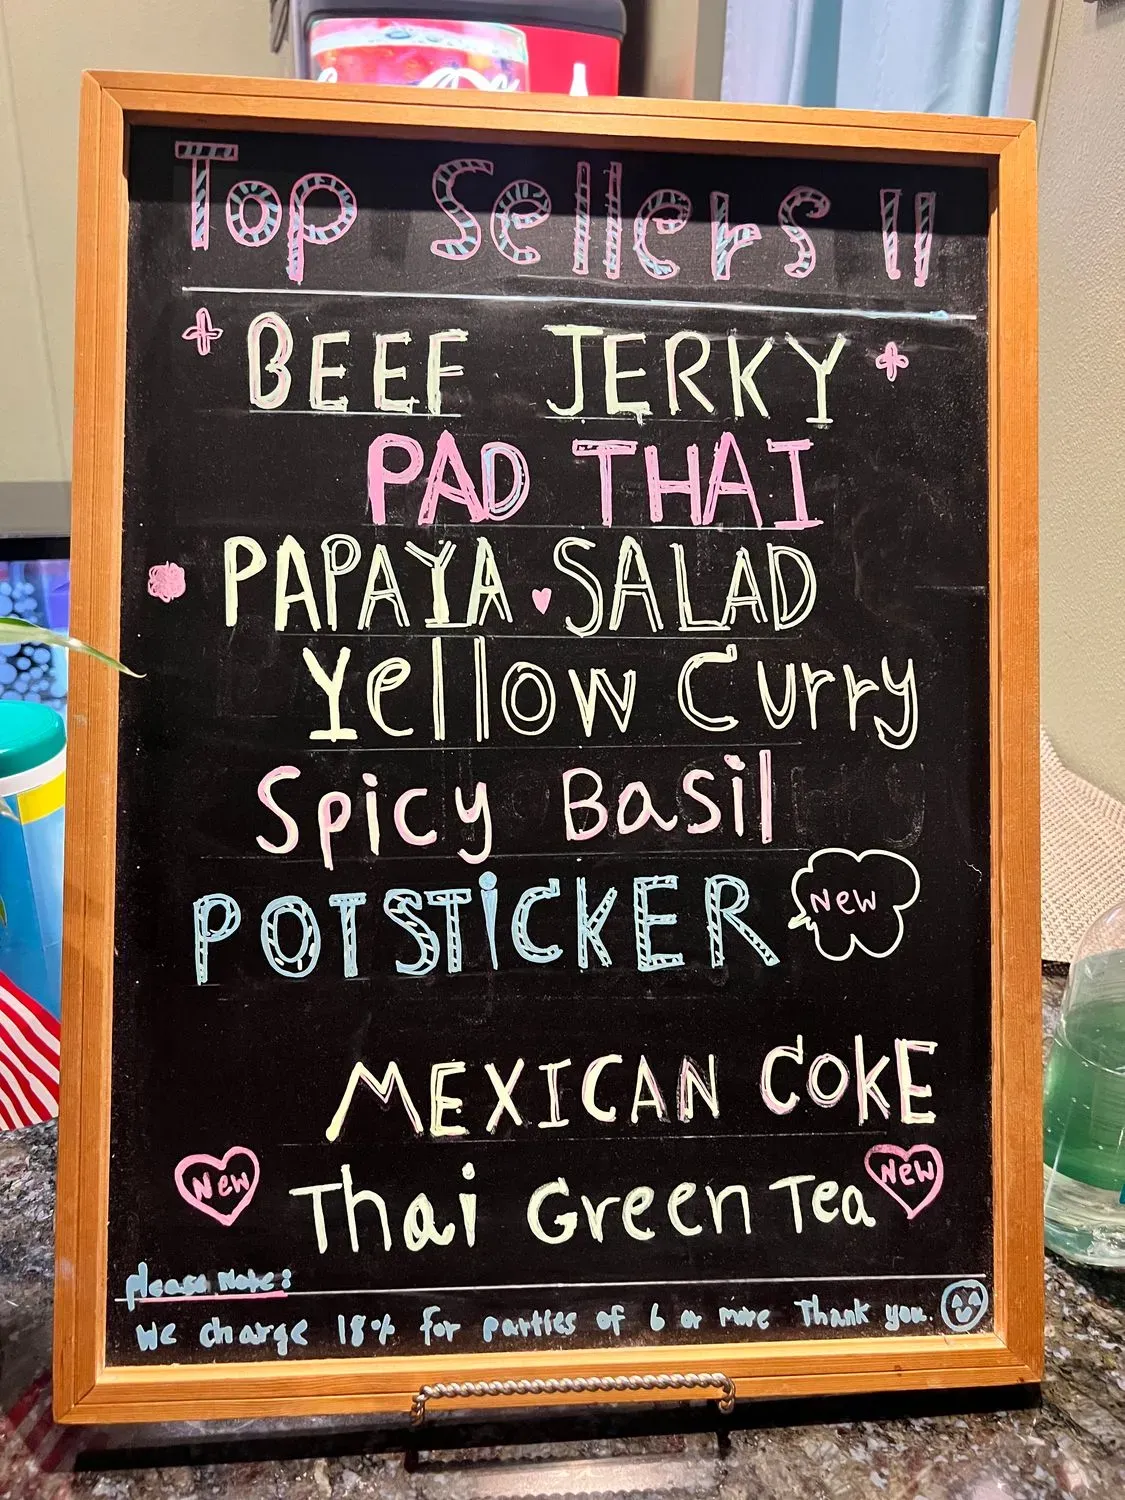 Top Sellers !!
BEEF JERKY
PAD THAI
PAPAYA SALAD
Yellow Curry
Spicy Basil
POTSTICKER New
MEXICAN COKE
New Thai Green Tea New
please Note:
we charge 18% for parties of 6 or more Thank you.